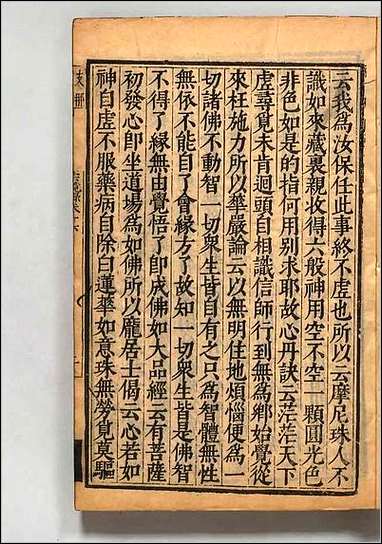 云我為汝保任此事終不虛也所以云摩尼珠人不
識如來藏裏親收得六般神用空不空一顆圓光色
非色如是的指何用別求耶故心丹訣云茫茫天下
虛尋覓未肯迴頭自相識信師行到無為鄉始覺從
來枉施力所以華嚴論云以無明住地煩惱便為一
切諸佛不動智一切眾生皆自有之只為智體無性
無依不能自了會緣方了故知一切眾生皆是佛智
不得了緣無由覺悟了即成佛如大品經云有菩薩
初發心即坐道場為如佛所以龐居士偈云心若如
神自虛不服藥病自除白蓮華如意珠無勞覓莫驅